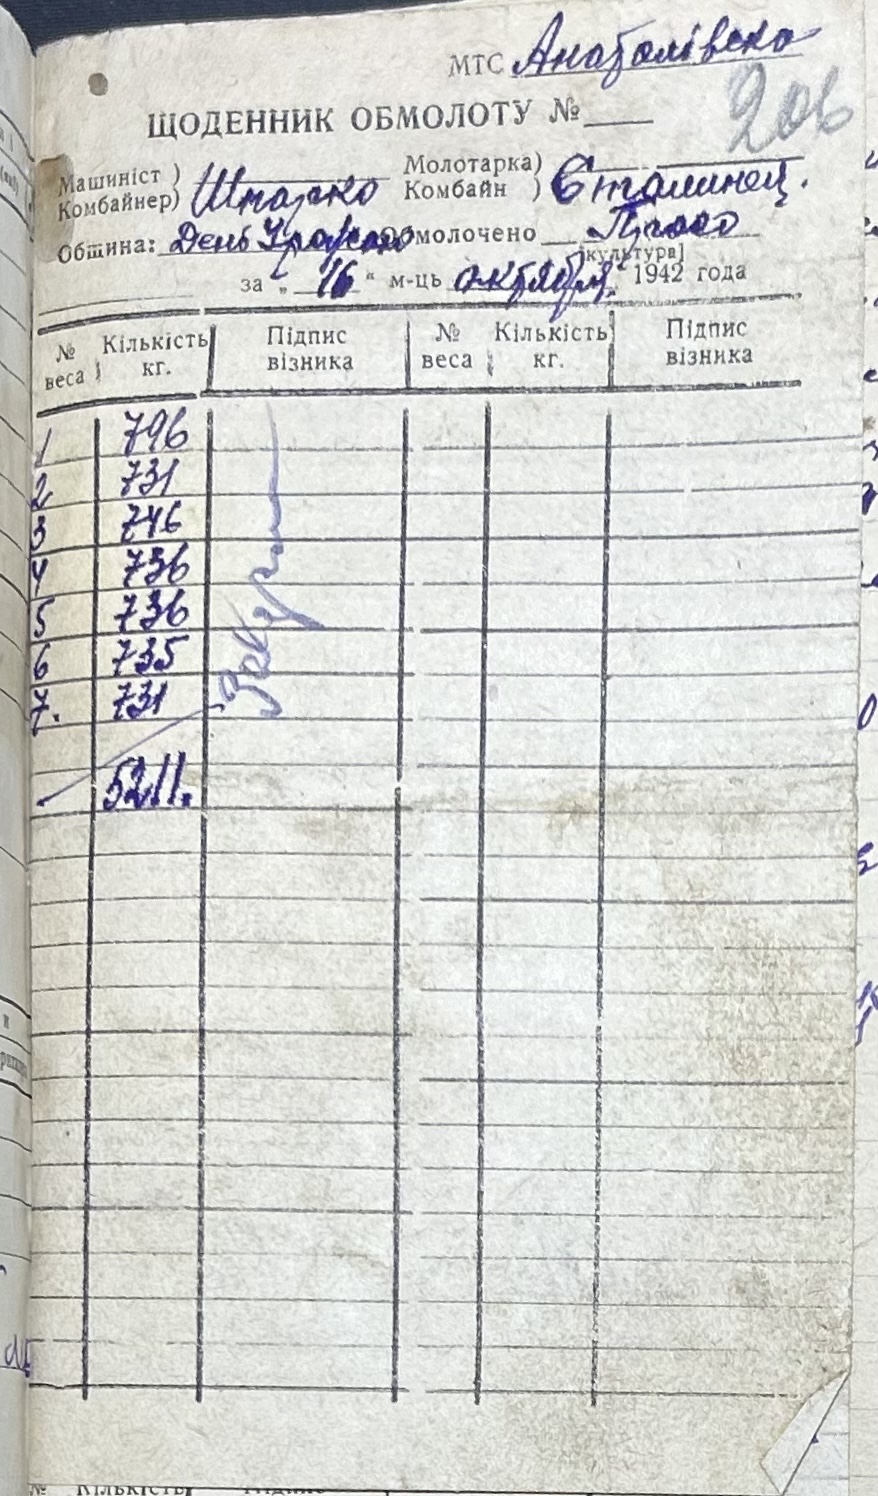 МТС Анатолівська
206
ЩОДЕННИК ОБМОЛОТУ №
Машиніст ) Молотарка)
Комбайнер) Комбайн ) Сталинец.
Община: День Урожаю Обмолочено Просо
[культура]
за „ 16 “ м-ць октября 1942 года
№ веса Кількість кг. Підпис візника № веса Кількість кг. Підпис візника
1 796
2 731
3 746
4 736
5 736
6 735
7. 731
5211.
№ Кількість Підпис